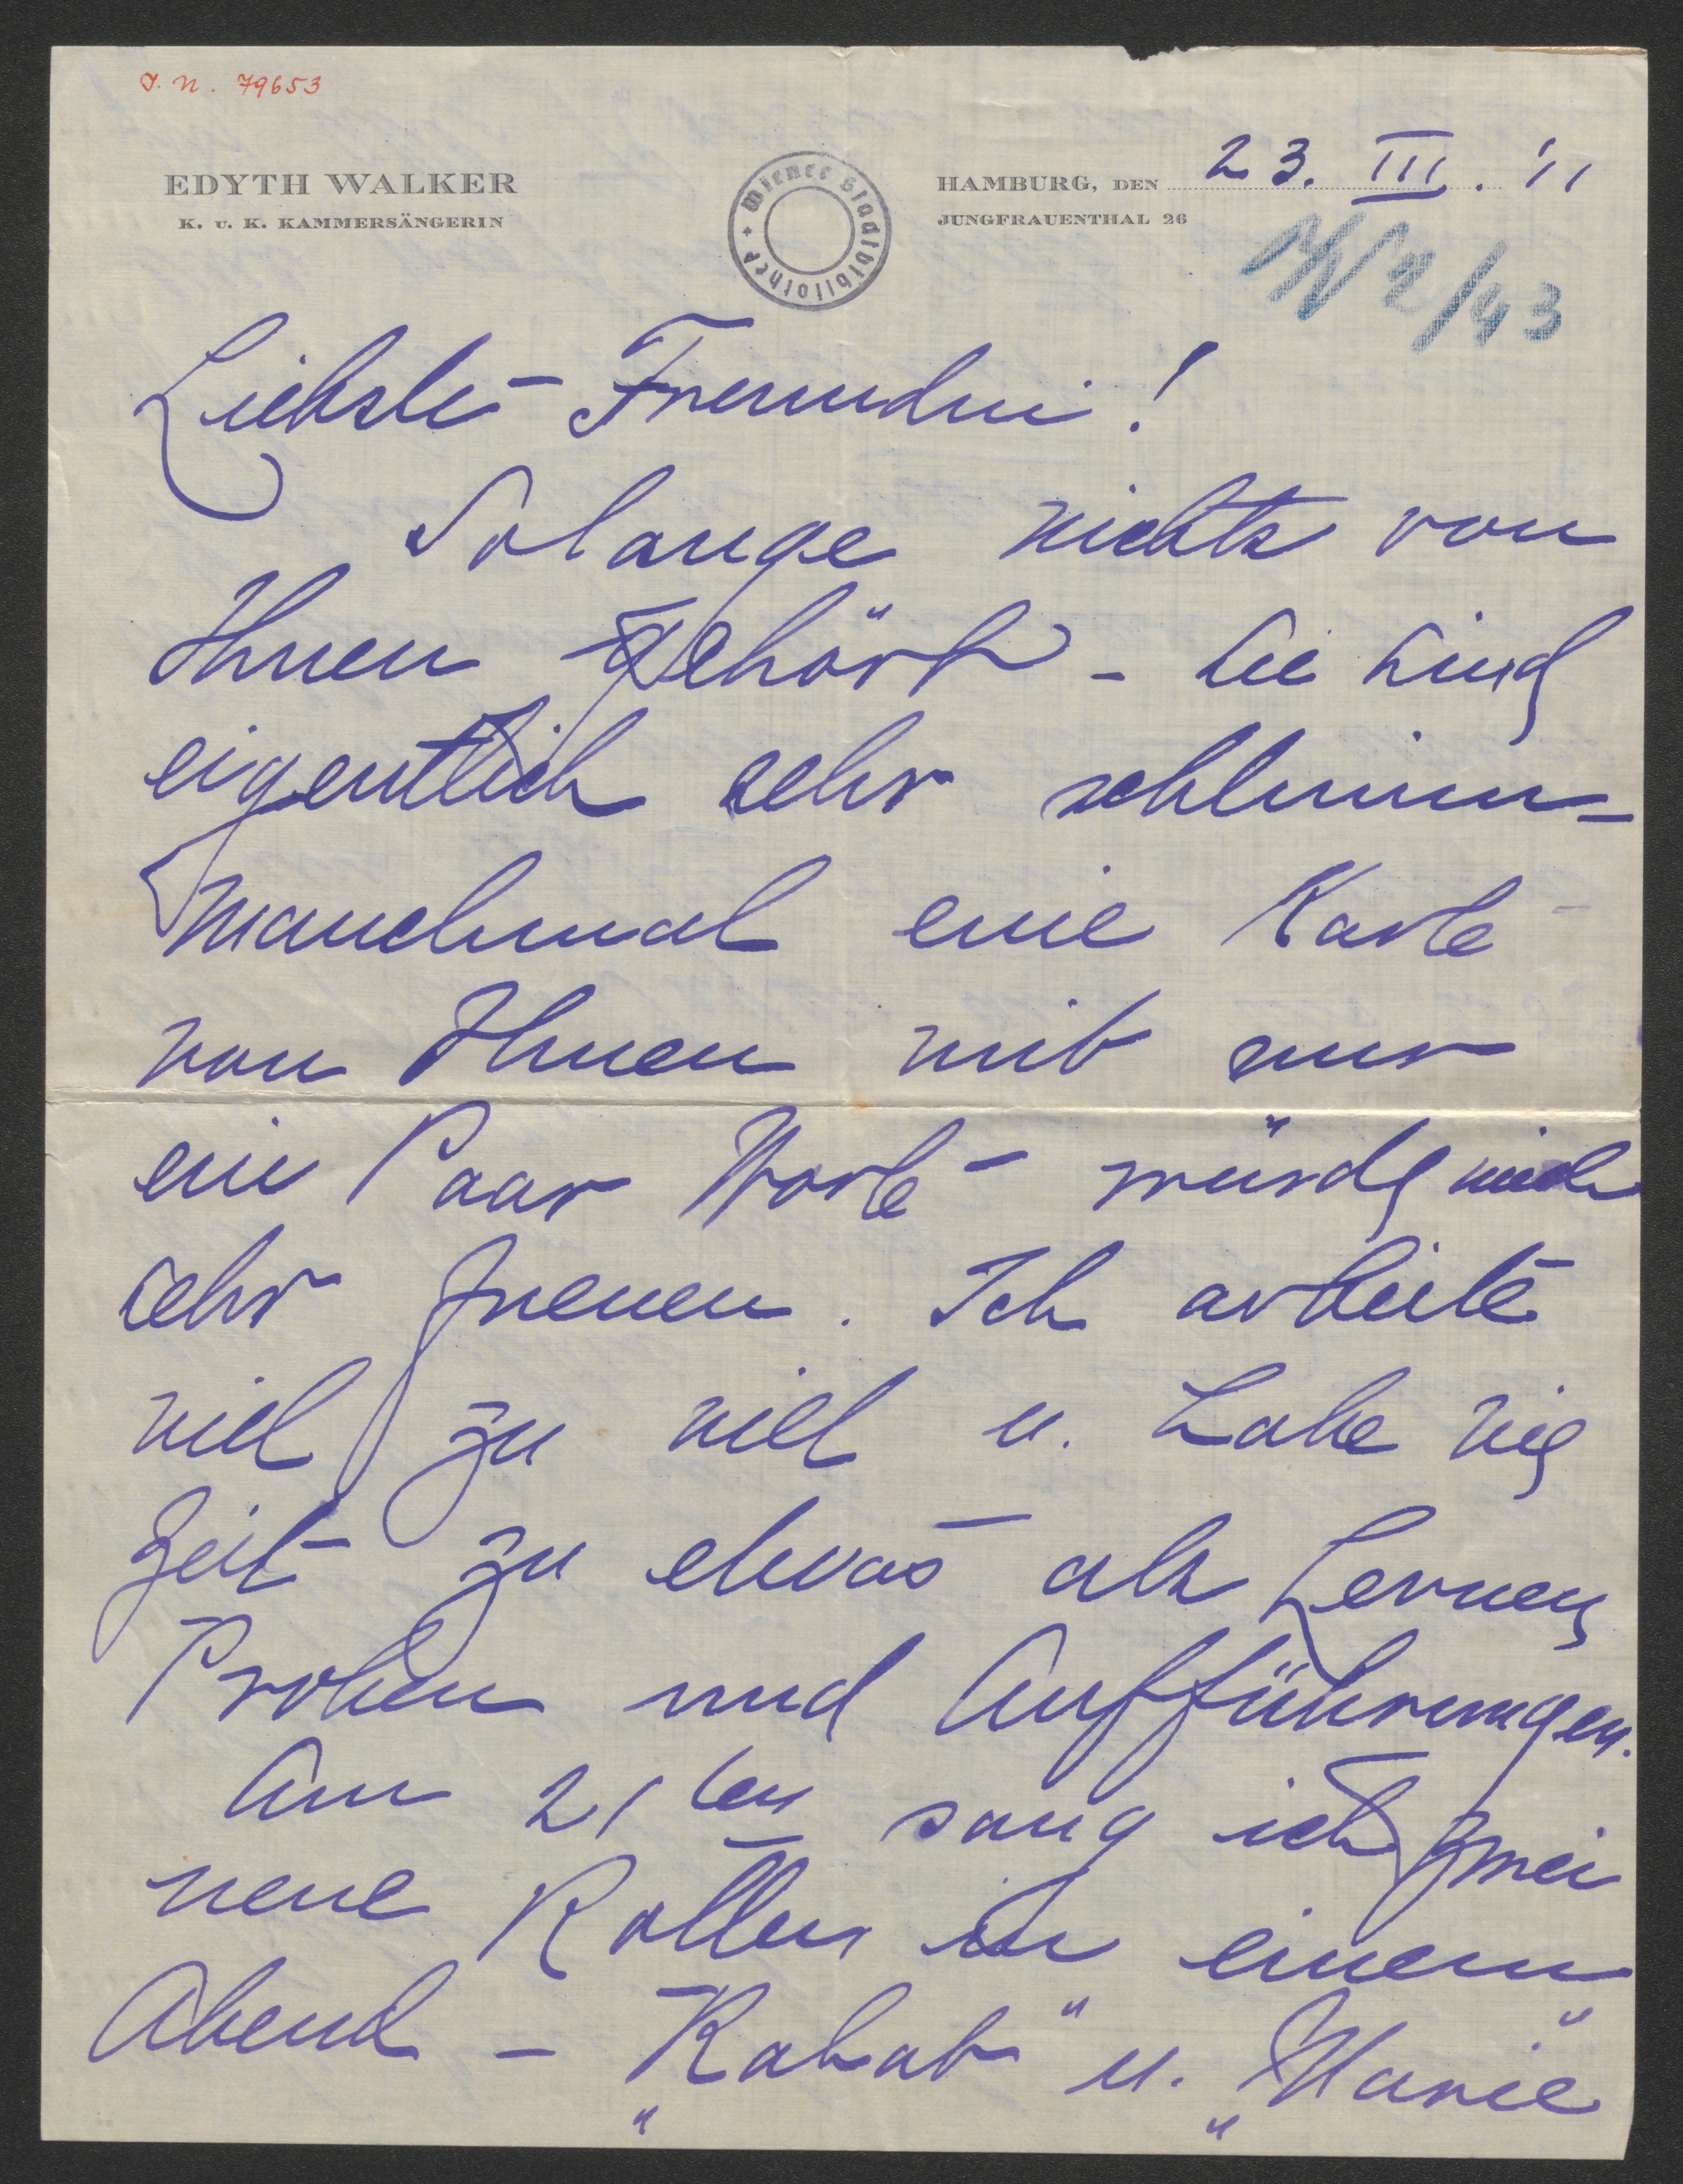 J. N. 79653
EDYTH WALKER
K. U. K. KAMMERSÄNGERIN
Wiener Stadtbibliothek
HAMBURG, DEN 23. III. '11
JUNGFRAUENTHAL 26
2/43
Liebste Freundin!
Solange nichts von
Ihnen gehört - Sie sind
eigentlich sehr schlimm -
Manchmal eine Karte
von Ihnen mit nur
ein Paar Worte würde mich
sehr freuen. Ich arbeite
viel zu viel u. habe nie
Zeit zu etwas als Lernen
Proben und Aufführungen.
Am 21ten sang ich zwei
neue Rollen in einem
Abend - „Rahab" u. „Marie"